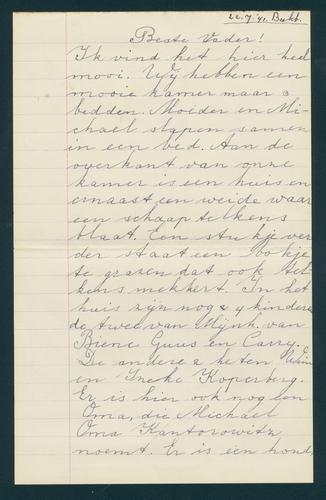 22.7.'41. Beekb.
Beste Vader!
Ik vind het hier heel
mooi. Wij hebben een
mooie kamer maar 3
bedden. Moeder en Mi-
chael slapen samen
in een bed. Aan de
overkant van onze
kamer is een huis en
ernaast een weide waar
een schaap telkens
blaat. Een stukje ver
der staat een bokje
te grazen dat ook tel-
kens mekkert. In het
huis zijn nog 4 kinderen
de twee van Mijnh. van
Biene Guus en Carry.
De andere 2 heten Wim
en Ineke Koperberg.
Er is hier ook nog een
Oma, die Michael
Oma Kantorowitz
noemt. Er is een hond,